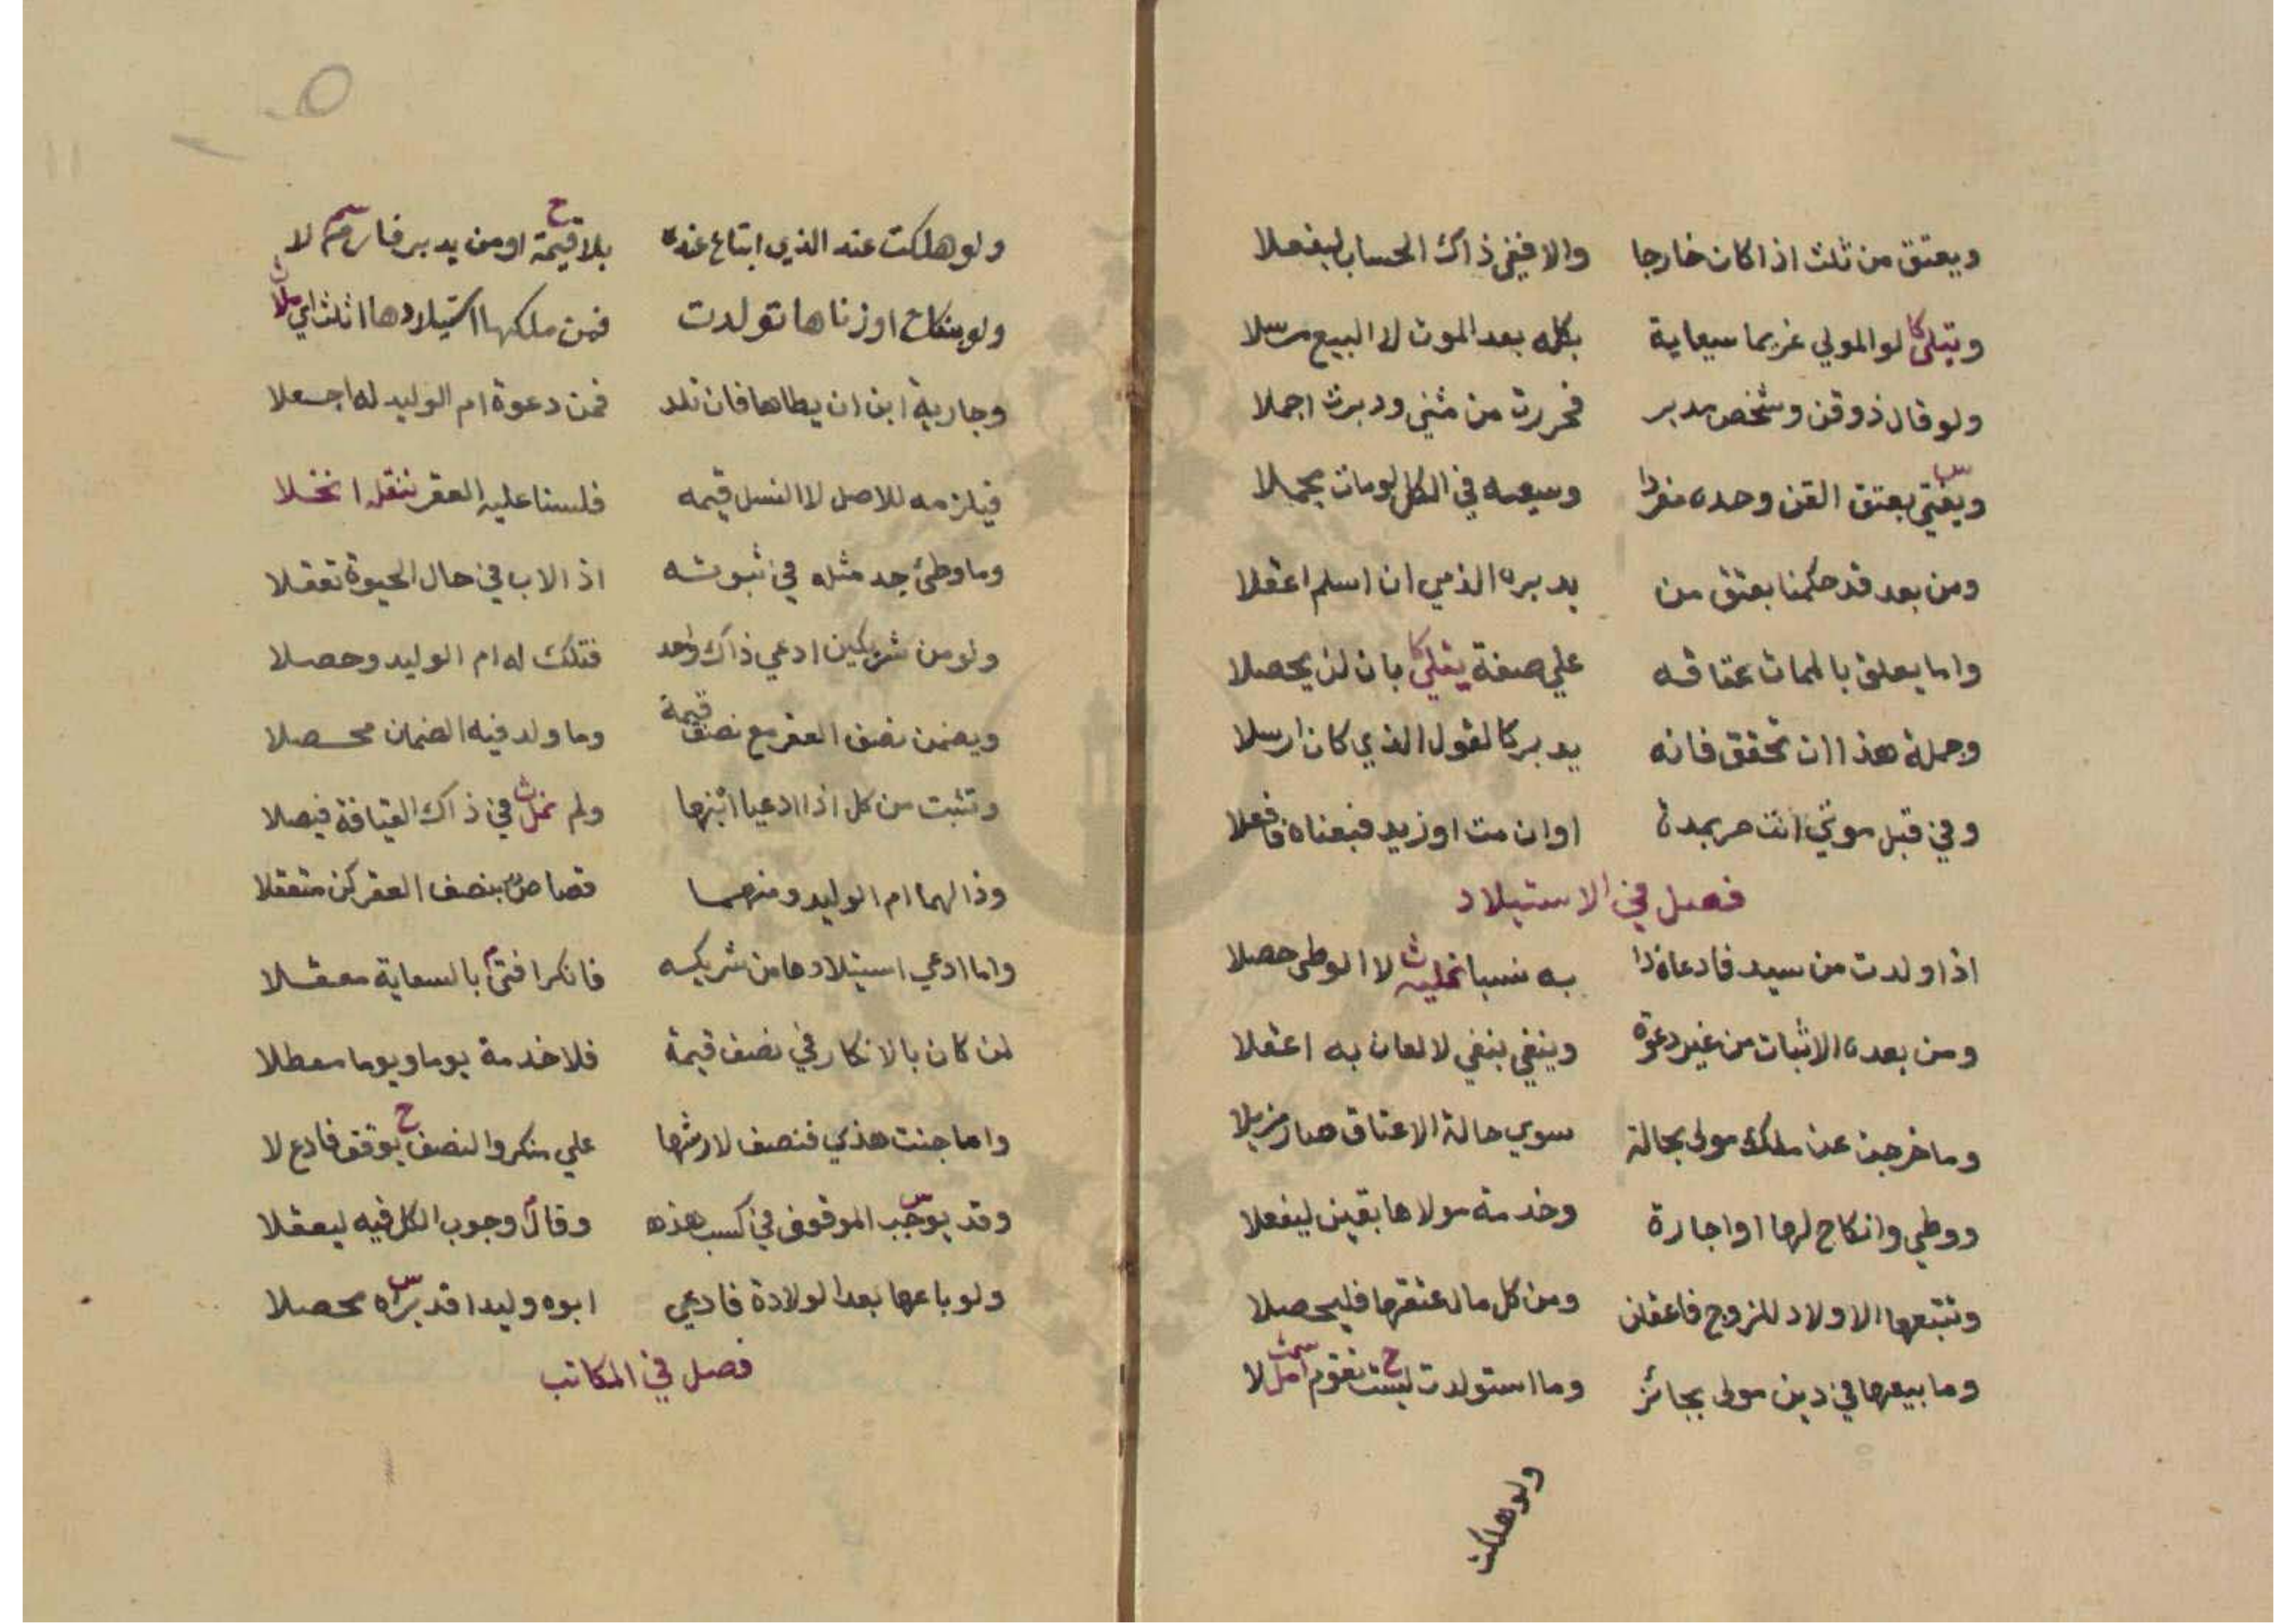 ويعتق من ثلث اذا كان خارجا والا ففي ذاك الحساب ليفعلا
ويتلى كا لو المولي غريما سيعاية بكله بعد الموت لا البيع مرسلا
ولو قال ذو قن وشخص مدبر فحررت من مثني ودبرت اجملا
س
ويفتي بعتق القن وحده مفردا وسيعه في الكل لومات مجملا
ومن بعد قد حكمنا بعتق من يدبره الذمي ان اسلم اعقلا
واما يعلق بالممات عتاقه علي صفة يتلى كا بان لن يحصلا
وجملة هذا ان تحقق فانه يدبر كالقول الذي كان ارسلا
وفي قبل موتي انت حر بمدة او ان مت او زيد فبعناه فافعلا
فصل في الاستيلاد
اذا ولدت من سيد فادعاه ذا به نسبا لا الوطي حصلا
ومن بعده الاثبات من غير دعوة وينفي بنفي لا لعان به اعقلا
وما خرجت عن ملك مولى بحالة سوي حالة الاعتاق صار مزيلا
ووطي وانكاح لها او اجارة وخدمة مولاها بقين ليفعلا
وتتبعها الاولاد للزوج فاعقلن ومن كل مال عتقها فليحصلا
وما بيعها في دين مولى بجائز وما استولدت ليست ح تقوم امل لا
ولو هلكت
ولو هلكت عند الذي ابتاع عنده بلا قيمة ح او من يدبر لا
ولو بنكاح او زناها تولدت فمن ملكها استيلادها
وجارية ابن ان يطاها فان تلد فمن دعوة ام الوليد له اجعلا
فيلزمه للاصل لا النسل قيمه فلسنا عليه العقر ننقله انخلا
وما وطئ جد مثله في ثبوته اذ الاب في حال الحيوة تعقلا
ولو من شريكين ادعي ذاك واحد فتلك له ام الوليد وحصلا
ويضمن نصف العقر مع نصف قيمة وما ولد فيه الضمان محصلا
وتثبت من كل اذا ادعيا ابنها ولم نمل ث في ذاك القيافة فيصلا
وذا لهما ام الوليد ومنهما قصاص بنصف العقر كن متعقلا
واما ادعي استيلادها من شريكه فانكر افتى م بالسعاية معقلا
لمن كان بالانكار في نصف قيمة فلا خدمة يوما ويوما معطلا
واما جنت هذي فنصف لارشها علي منكر والنصف ح يوقف فادع لا
وقد يوجب س الموقوف في كسب هذه وقال م وجوب الكل فيه ليعقلا
ولو باعها بعد الولادة فادعي ابوه وليدا قد يراه س محصلا
فصل في المكاتب